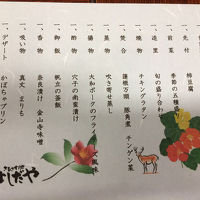 一、先付　柿豆腐
一、前菜　季節の五種盛り
一、造里　旬の盛り合わせ
一、焼物　チキングラタン
一、焚合　蓮根万頭　豚角煮　チンゲン菜
一、蒸物　吹き寄せ蒸し
一、揚物　大和ポークのフライ
一、酢物　穴子の南蛮漬け
一、御飯　帆立の釜飯
一、香物　奈良漬け　金山寺味噌
一、吸い物　真丈　まりも
一、デザート　かぼちゃプリン
よしだや